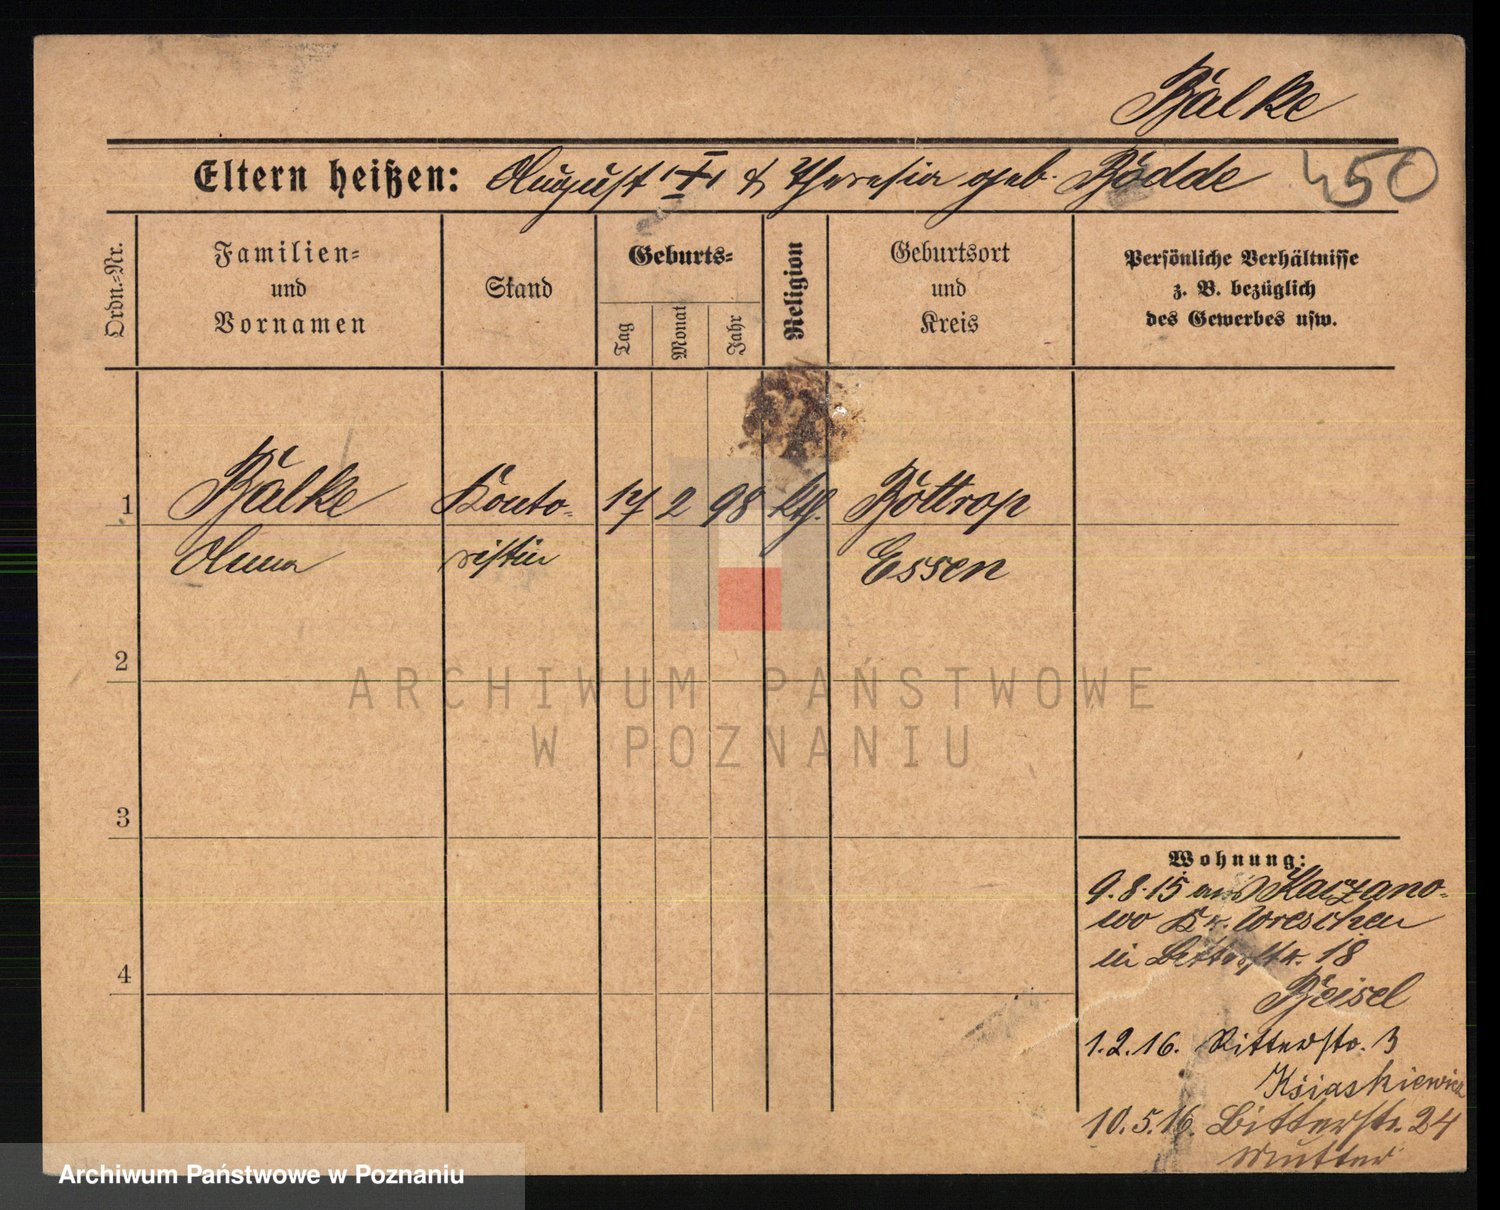 Bälke
Eltern heißen: August † & Theresia geb. Bödde
450
Ordn.-Nr.
Familien-
und
Vornamen
Stand
Geburts-
Tag
Monat
Jahr
Religion
Geburtsort
und
Kreis
Persönliche Verhältnisse
z. B. bezüglich
des Gewerbes usw.
1 Bälke Konto- 17 2 98 kth. Bottrop
Anna ristin Essen
2
3
4
Wohnung:
9.8.15 aus Kaczano-
wo Kr. Wreschen
in Ritterstr. 18
Beisel
1.2.16. Ritterstr. 3
Ksiaskiewicz
10.5.16. Bitterstr. 24
Mutter
ARCHIWUM PAŃSTWOWE
W POZNANIU
Archiwum Państwowe w Poznaniu